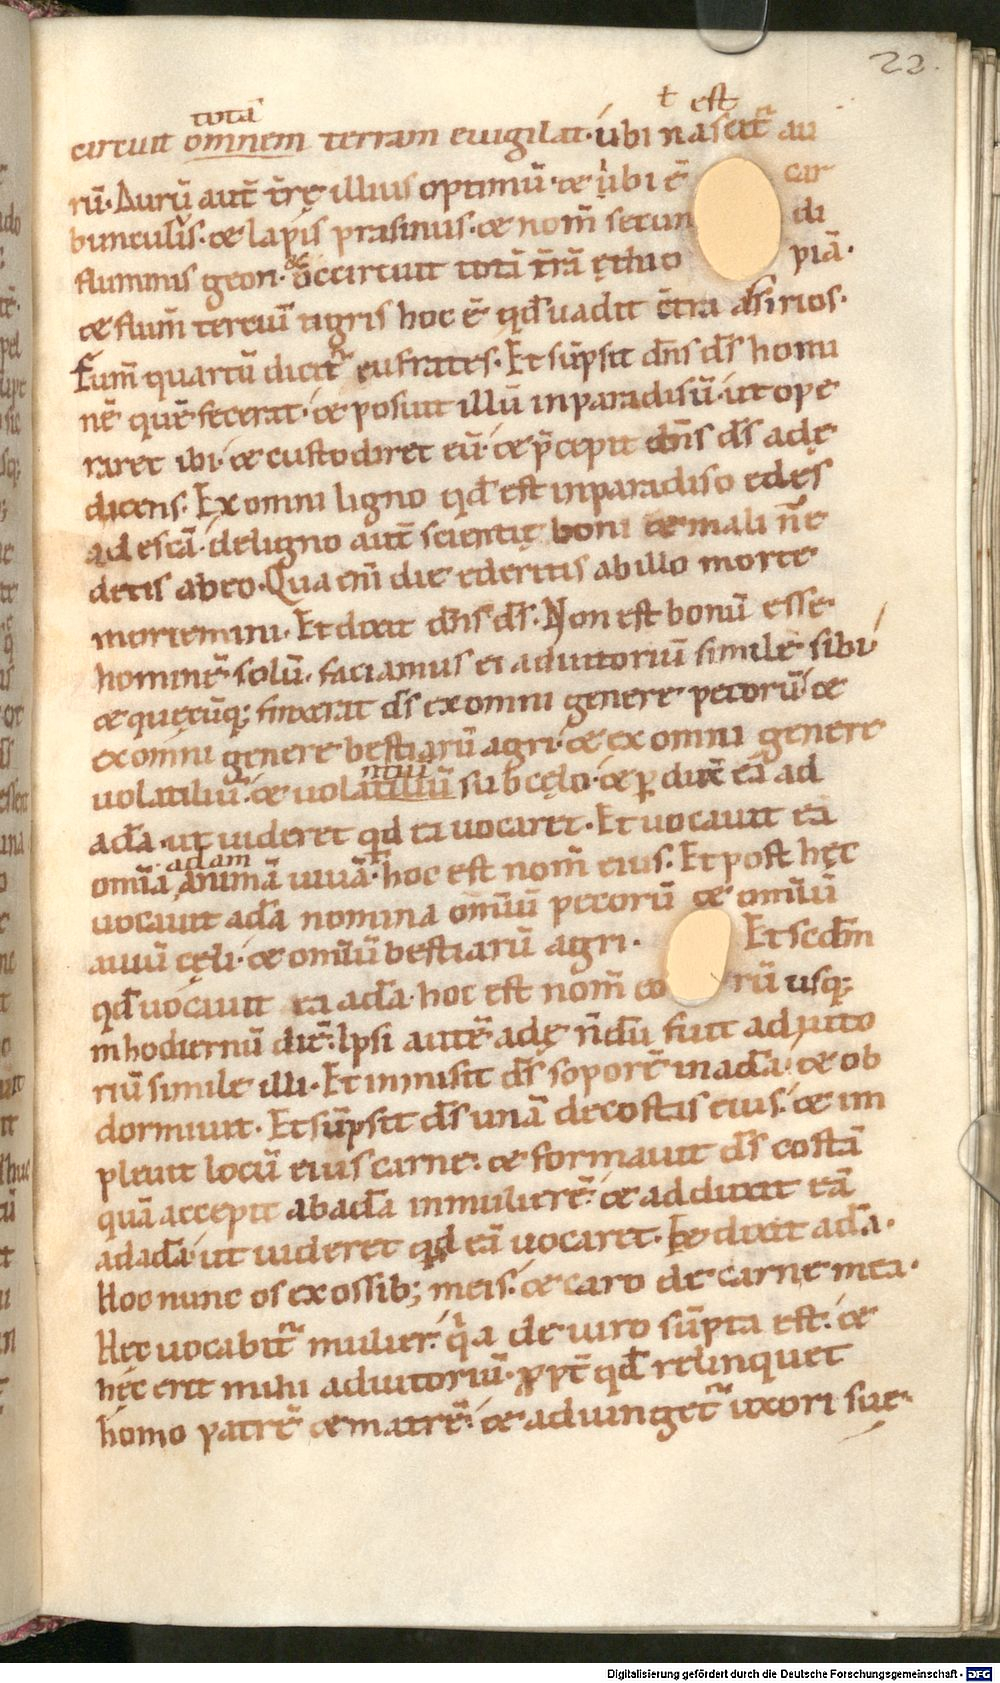 22.
totā
ł est
circuit omnem terram euigilat· ubi nascit᷑ au
rū· Aurū aut̄ tr̄ę illius optimū· & ubi ē car
bunculus· & lapis prasinus· & nom̄ secun di
fluminis geon· & occircuit totā tr̄ā ęthio piā·
& flum̄ terciū tigris hoc ē qd̄ uadit ct̄ra assirios·
Flum̄ quartū dicit᷑ eufrates· Et sūpsit dn̄s ds̄ homi
nē quē fecerat· & posuit illū inparadisū· ut ope
raret ibi· & custodiret eū· & p̄cepit dn̄s ds̄ adę
dicens· Ex omni ligno qd̄ est inparadiso edęs
ad escā· deligno aut̄ scientię boni & mali n̄ e
detis abeo· Qua em̄ die ederitis abillo morte
moriemini· Et dixit dn̄s ds̄· Non est bonū esse
hominē solū· faciamus ei adiutoriū similē sibi
& quęcūq; finxerat ds̄ exomni genere pecorū &
exomni genere bestiarū agri· & ex omni genere
uolatiliū· & uolatiliū subcęlo· & ꝑduxit ea ad
adā· ut uideret qd ea uocaret· Et uocauit ea
adam
omīa animā uiuā· hoc est nom̄ eius· Et post hęc
uocauit adā nomina omīū pecorū & omīū
auiū cęli· & omīū bestiarū agri· Et scdm̄
qd̄ uocauit ea adā· hoc est nom̄ eo rū usq;
inhodiernū diē· Ipsi autē adę n̄dū fuit adiuto
riū simile illi· Et inmisit ds̄ soporē in adā· & ob
dormiuit· Et sūpsit ds̄ unā decostis eius· & im
pleuit locū eius carne· & formauit ds̄ costā
quā accepit abadā inmulierē· & adduxit eā
adadā· ut uideret qd eā uocaret· Et dixit adā·
Hoc nunc os ex ossib; meis· & caro de carne mea·
Hec uocabit᷑ mulier· q̄a de uiro sūpta est· &
hęc erit mihi adiutoriū· ꝓpt̄ qd̄ relinquet
homo patrē & matrē· & adiunget᷑ uxori suę·
Digitalisierung gefördert durch die Deutsche Forschungsgemeinschaft - DFG